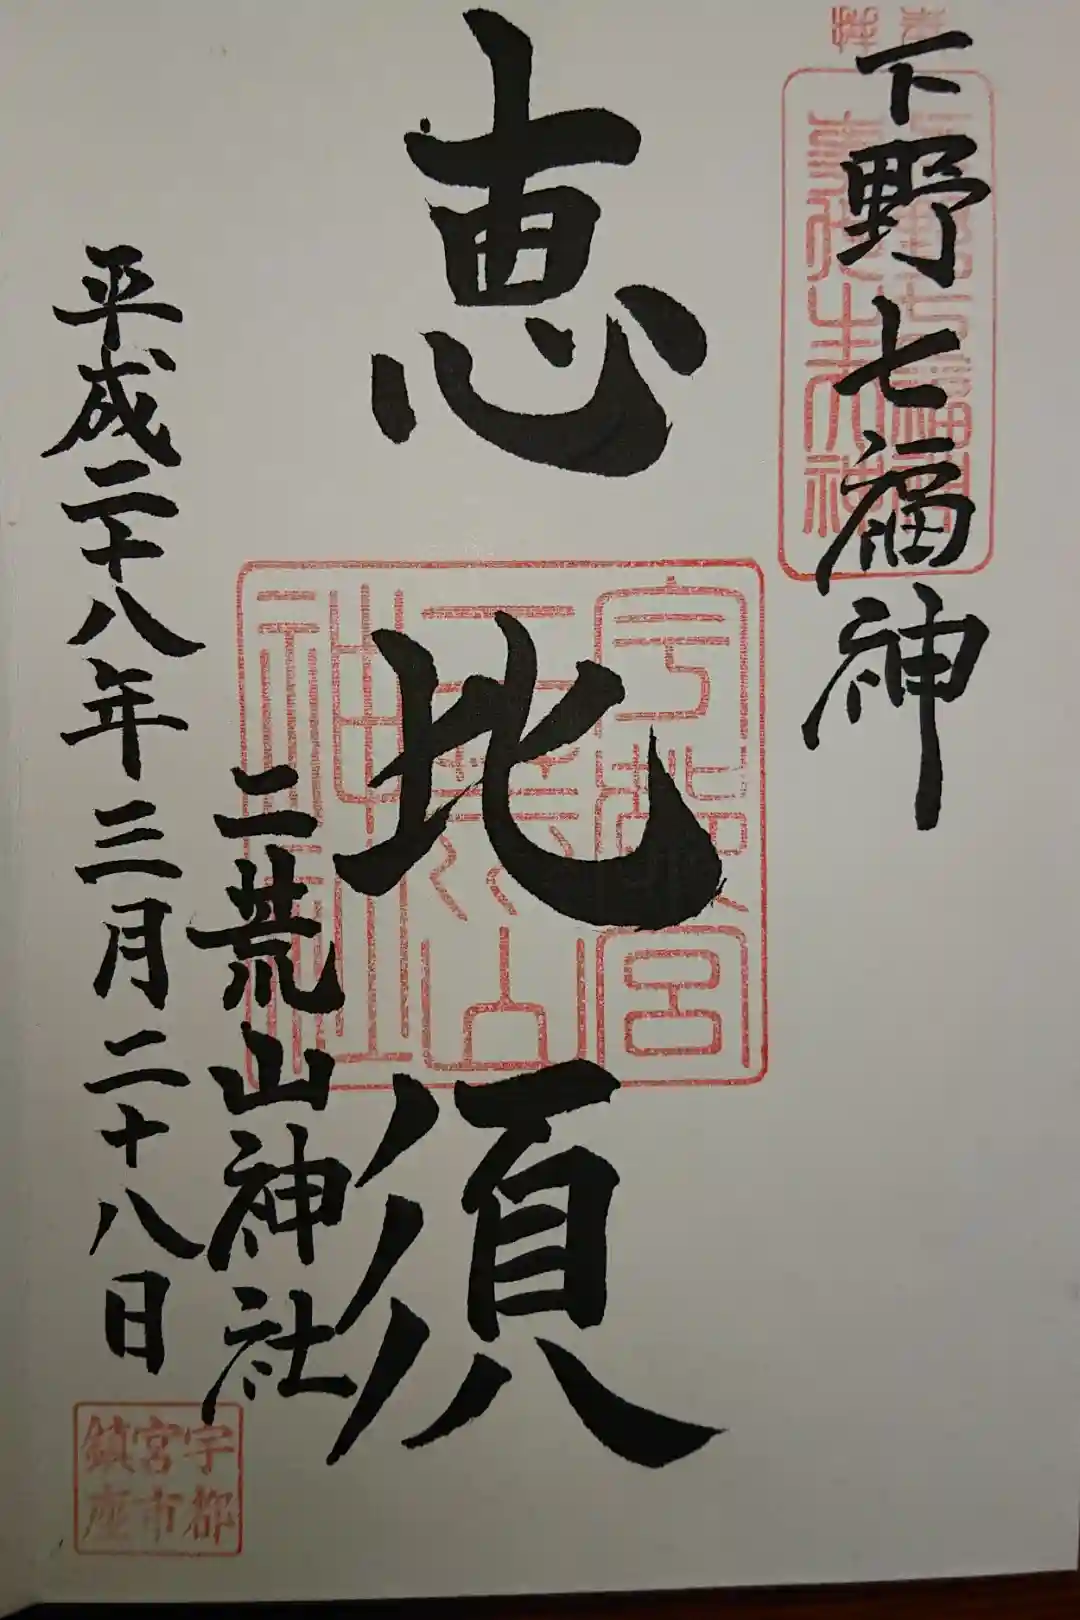 下野七福神
恵比須
宇都宮
二荒山
神社
二荒山神社
平成二十八年三月二十八日
宇都
宮市
鎮座